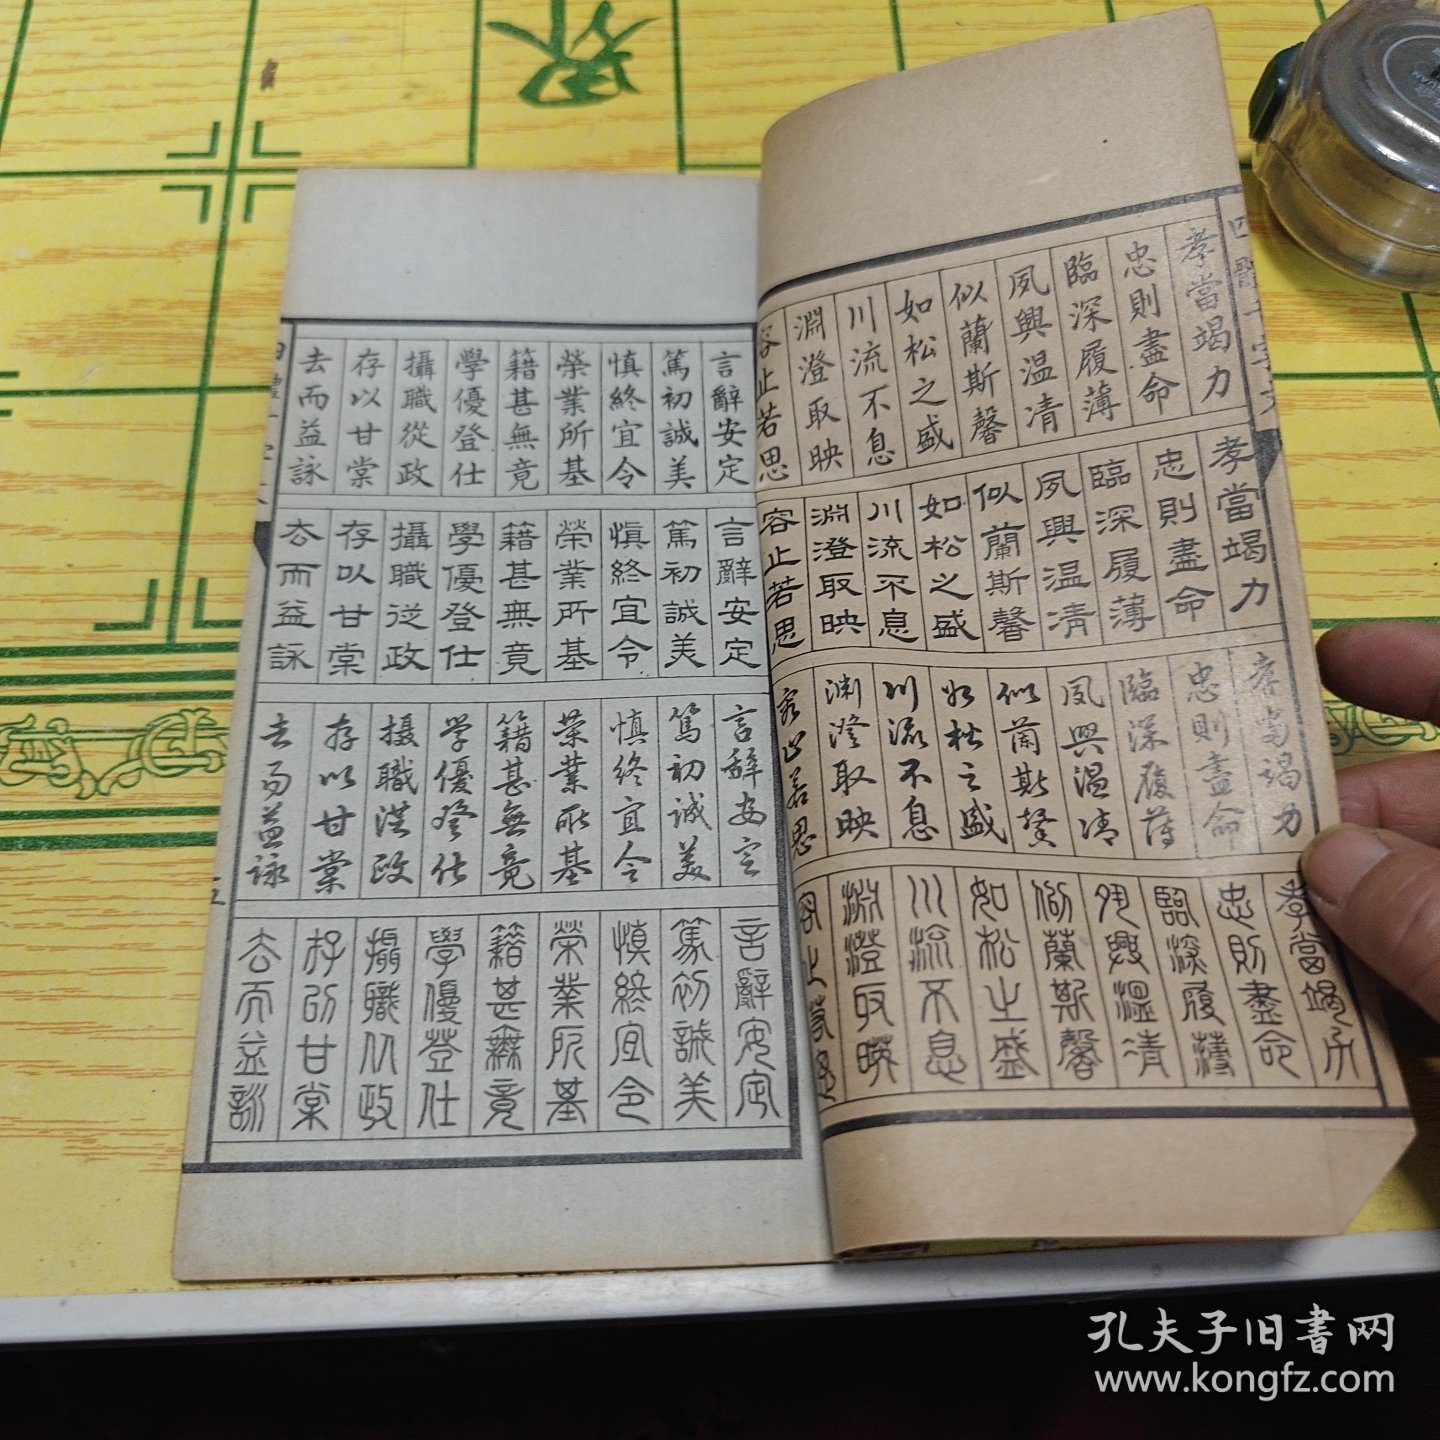 四體千字文
孝當竭力
忠則盡命
臨深履薄
夙興温凊
似蘭斯馨
如松之盛
川流不息
淵澄取映
容止若思
孝當竭力
忠則盡命
臨深履薄
夙興温凊
似蘭斯馨
如松之盛
川流不息
淵澄取映
容止若思
孝當竭力
忠則盡命
臨深履薄
夙興温凊
似蘭斯馨
如松之盛
川流不息
淵澄取映
容止若思
孝當竭力
忠則盡命
臨深履薄
夙興温凊
似蘭斯馨
如松之盛
川流不息
淵澄取映
容止若思
言辭安定
篤初誠美
慎終宜令
榮業所基
籍甚無竟
學優登仕
攝職從政
存以甘棠
去而益詠
言辭安定
篤初誠美
慎終宜令
榮業所基
籍甚無竟
學優登仕
攝職從政
存以甘棠
去而益詠
言辭安定
篤初誠美
慎終宜令
榮業所基
籍甚無竟
學優登仕
攝職從政
存以甘棠
去而益詠
言辭安定
篤初誠美
慎終宜令
榮業所基
籍甚無竟
學優登仕
攝職從政
存以甘棠
去而益詠
五
界
孔夫子旧书网
www.kongfz.com